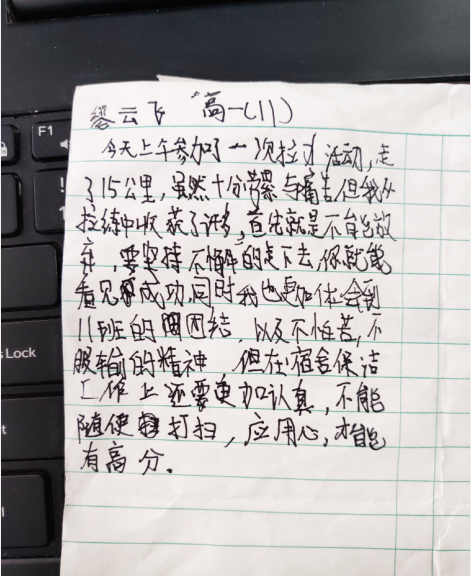 缪云飞 高一(11)
今天上午参加了一次拉力活动,走
了15公里,虽然十分劳累与痛苦但我从
拉练中收获了许多,首先就是不能放
弃,要坚持不懈的走下去,你就能
看见成功,同时我也更加体会到
11班的团结,以及不怕苦,不
服输的精神,但在宿舍保洁
工作上还需更加认真,不能
随便打扫,应用心,才能
有高分.
F1
s Lock
t